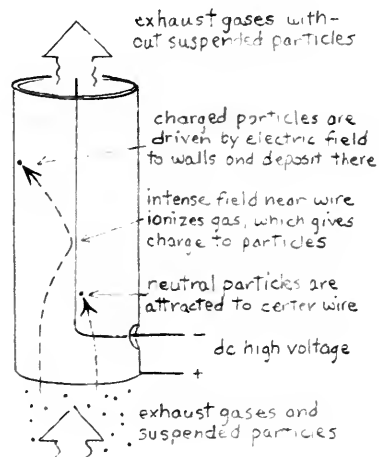 exhaust gases with-
out suspended particles
charged particles are
driven by electric field
to walls and deposit there
intense field near wire
ionizes gas, which gives
charge to particles
neutral particles are
attracted to center wire
−
dc high voltage
+
exhaust gases and
suspended particles